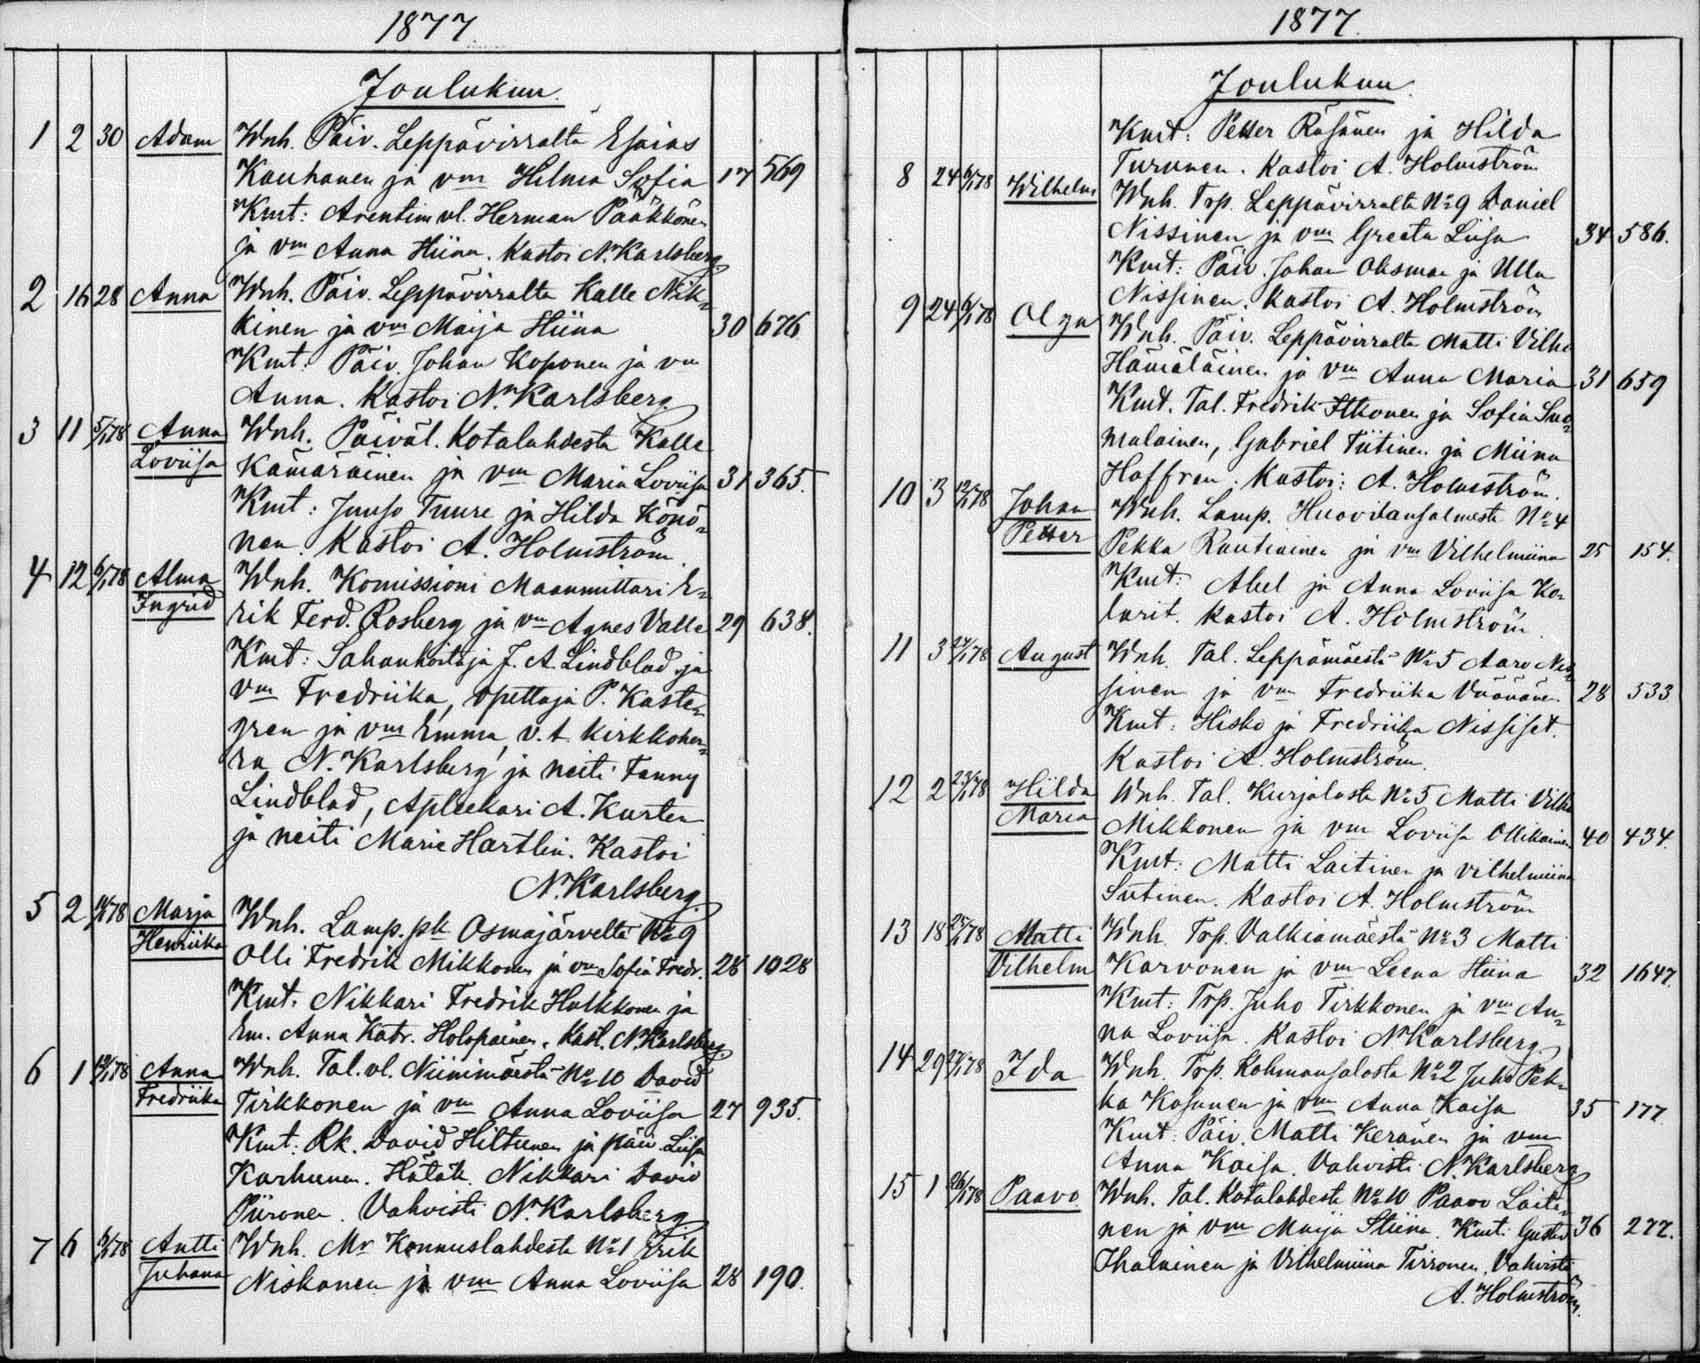 1877.
Joulukuu.
1 2 30 Adam Wnh. Päiv. Leppävirralta Esaias
Kauhanen ja vm Hilma Sofia 17 569
Kmt: Arentim vl. Herman Pääkkönen
ja vm Anna Stiina. Kastoi N. Karlsberg
2 16 28 Anna Wnh. Päiv. Leppävirralta Kalle Nik-
kinen ja vm Maija Stiina 30 676
Kmt: Päiv. Johan Koponen ja vm
Anna. Kastoi N. Karlsberg.
3 11 5/1 78 Anna Wnh. Päiväl. Kotalahdesta Kalle
Loviisa Kämäräinen ja vm Maria Loviisa 31 365.
Kmt: Juuso Tuure ja Hilda Könö-
nen. Kastoi A. Holmström.
4 12 6/1 78 Alma Wnh. Komissioni Maanmittari E-
Ingrid rik Ferd. Rosberg ja vm Agnes Valle 29 638.
Kmt: Sahanhoitaja J. A. Lindblad ja
vm Fredriika, opettaja P. Kasten-
gren ja vm Emma, v.t. kirkkoher-
ra N. Karlsberg ja neiti Fanny
Lindblad, Apteekari A. Kurten
ja neiti Marie Hartlin. Kastoi
N. Karlsberg.
5 2 78 Marja Wnh. Lamp. pk Osmajärveltä No 9
Henriika Olli Fredrik Mikkonen ja vm Sofia Fredr. 28 1028
Kmt. Nikkari Fredrik Hulkkonen ja
Em. Anna Katr. Holopainen. Kast. N. Karlsberg.
6 1 78 Anna Wnh. Tal. vl. Niinimäestä No 10 David
Fredriika Tirkkonen ja vm Anna Loviisa 27 935.
Kmt: Rk. David Hiltunen ja päiv. Liisa
Karhunen. Hätäk. Nikkari David
Piironen. Vahvisti N. Karlsberg.
7 6 6/1 78 Antti Wnh. Mr Konnuslahdesta No 1 Erik
Juhana Niskanen ja vm Anna Loviisa 28 190.
1877.
Joulukuu.
Kmt: Petter Räsänen ja Hilda
Turunen. Kastoi A. Holmström
8 24 6/1 78 Wilhelm Wnh. Trp. Leppävirralta No 9 Daniel
Nissinen ja vm Greeta Liisa 34 586.
Kmt: Päiv. Johan Ohsman ja Ulla
Nissinen. Kastoi A. Holmström
9 24 6/1 78 Olga Wnh. Päiv. Leppävirralta Matti Vilhe
Hämäläinen ja vm Anna Maria 31 659
Kmt. Tal. Fredrik Itkonen ja Sofia Suo-
malainen, Gabriel Tiitinen ja Miina
Hoffren. Kastoi: A. Holmström.
10 3 12/1 78 Johan Wnh. Lamp. Huovilansalmesta No 4
Petter Pekka Rautiainen ja vm Vilhelmiina 25 154.
Kmt: Abel ja Anna Loviisa Ko-
larit. Kastoi A. Holmström.
11 3 78 August Wnh. Tal. Leppämäestä No 5 Aaro Nis-
sinen ja vm Fredriika Väänänen 28 533
Kmt: Hisko ja Fredriika Nissiset.
Kastoi A. Holmström.
12 2 23/1 78 Hilda Wnh. Tal. Kurjalasta No 5 Matti Vilhe
Maria Mikkonen ja vm Loviisa Ollikainen 40 434.
Kmt: Matti Laitinen ja Vilhelmiina
Sutinen. Kastoi A. Holmström
13 18 25/1 78 Matti Wnh. Trp. Valkiamäestä No 3 Matti
Vilhelm Karvonen ja vm Leena Stiina 32 1647.
Kmt: Trp. Juho Tirkkonen ja vm An-
na Loviisa. Kastoi N. Karlsberg.
14 29 78 Ida Wnh. Trp. Kohmansalosta No 2 Juho Pek-
ka Kosunen ja vm Anna Kaisa 35 177.
Kmt: Päiv. Matti Keränen ja vm
Anna Kaisa. Vahvisti N. Karlsberg
15 1 26/1 78 Paavo Wnh. Tal. Kotalahdesta No 10 Paavo Laiti-
nen ja vm Maija Stiina. Kmt: Gustav 36 277.
Ihalainen ja Vilhelmiina Tirronen. Vahvisti
A. Holmström.